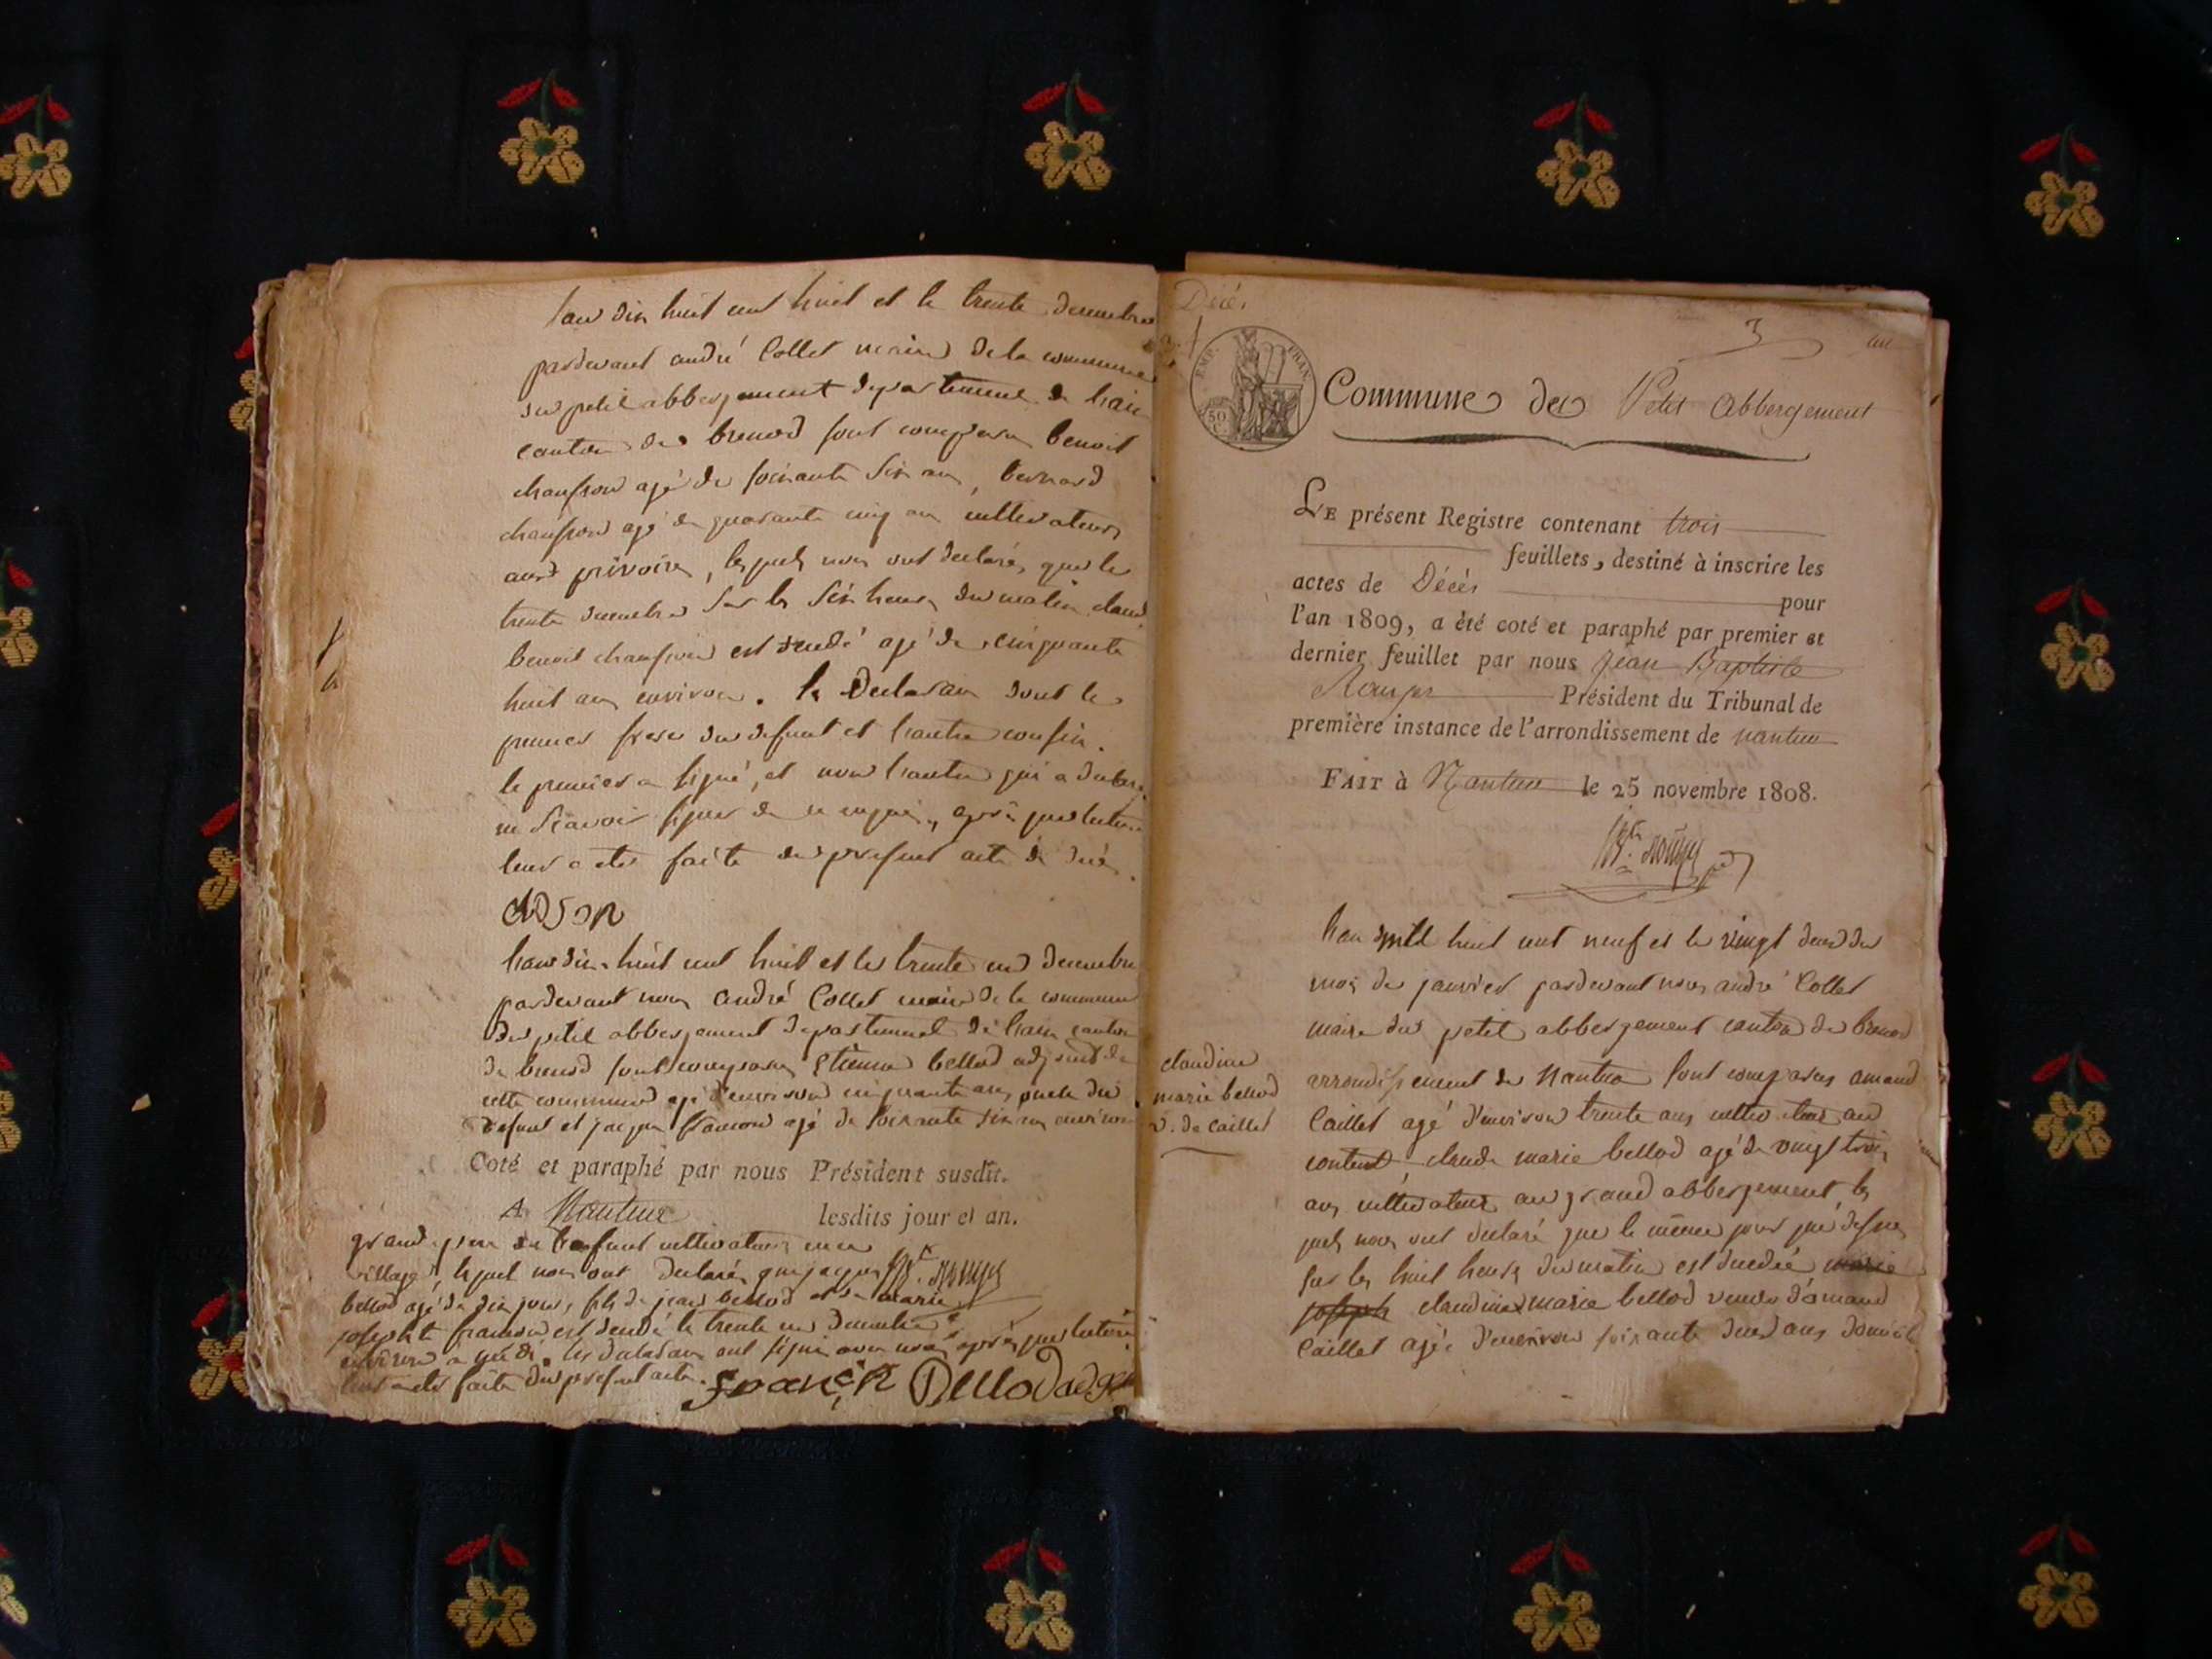 lan dix huit cent huit et le trente decembre
pardevant andré Collet maire de la commune
du petit abbergement departement de lain
canton de brenod sont comparu benoit
chanfson agé de soixante six ans, bernard
chanfson agé de quarante cinq ans cultivateurs
aud privoire, lesquels nous ont declaré, que le
trente decembre sur les six heures du matin claud
benoit chanfson est decedé agé de cinquante
huit ans environ. les Declarans sont le
premier frere du defunt et l'autre cousin.
le premier a signé, et non l'autre qui a declaré
ne scavoir signer de ce enquis, après que lecture
leur a eté faite du present acte de decès.
lan dix-huit cent huit et le trente un decembre
pardevant nous andré Collet maire de la commune
du petit abbergement departement de lain canton
de brenod sont comparu Etienne bellod adjoint de
cette commune agé d'environ cinquante ans, oncle du
defunt et jacques françon agé de soixante six ans environ
Coté et paraphé par nous Président susdit.
A Nantua lesdits jour et an.
grand pere du defunt cultivateurs en ce
village, lesquels nous ont declaré, que jacques
bellod agé de dix jours, fils de jean bellod et de marie
josephte françon est decedé le trente un decembre
les declarans ont signé avec nous après que lecture
leur a eté faite du present acte.
françon Bellod adjt
Décès
3
EMP. FRAN.
50 C
Commune de Petit Abbergement
LE présent Registre contenant trois
feuillets, destiné à inscrire les
actes de Décès pour
l'an 1809, a été coté et paraphé par premier et
dernier feuillet par nous Jean Baptiste
Rouyer Président du Tribunal de
première instance de l'arrondissement de nantua
FAIT à Nantua le 25 novembre 1808.
lan mil huit cent neuf et le vingt deux du
mois de janvier pardevant nous andré Collet
maire du petit abbergement canton de brenod
claudine
marie bellod
v. de caillet
arrondissement de Nantua sont comparus amand
Caillet agé d'environ trente ans cultivateur au
contens, claude marie bellod agé de vingt trois
ans cultivateur au grand abbergement, les
quels nous ont declaré que le même jour que dessus
sur les huit heures du matin est decedée marie
joseph claudine marie bellod veuve d'amand
Caillet agée d'environ soixante deux ans domicil